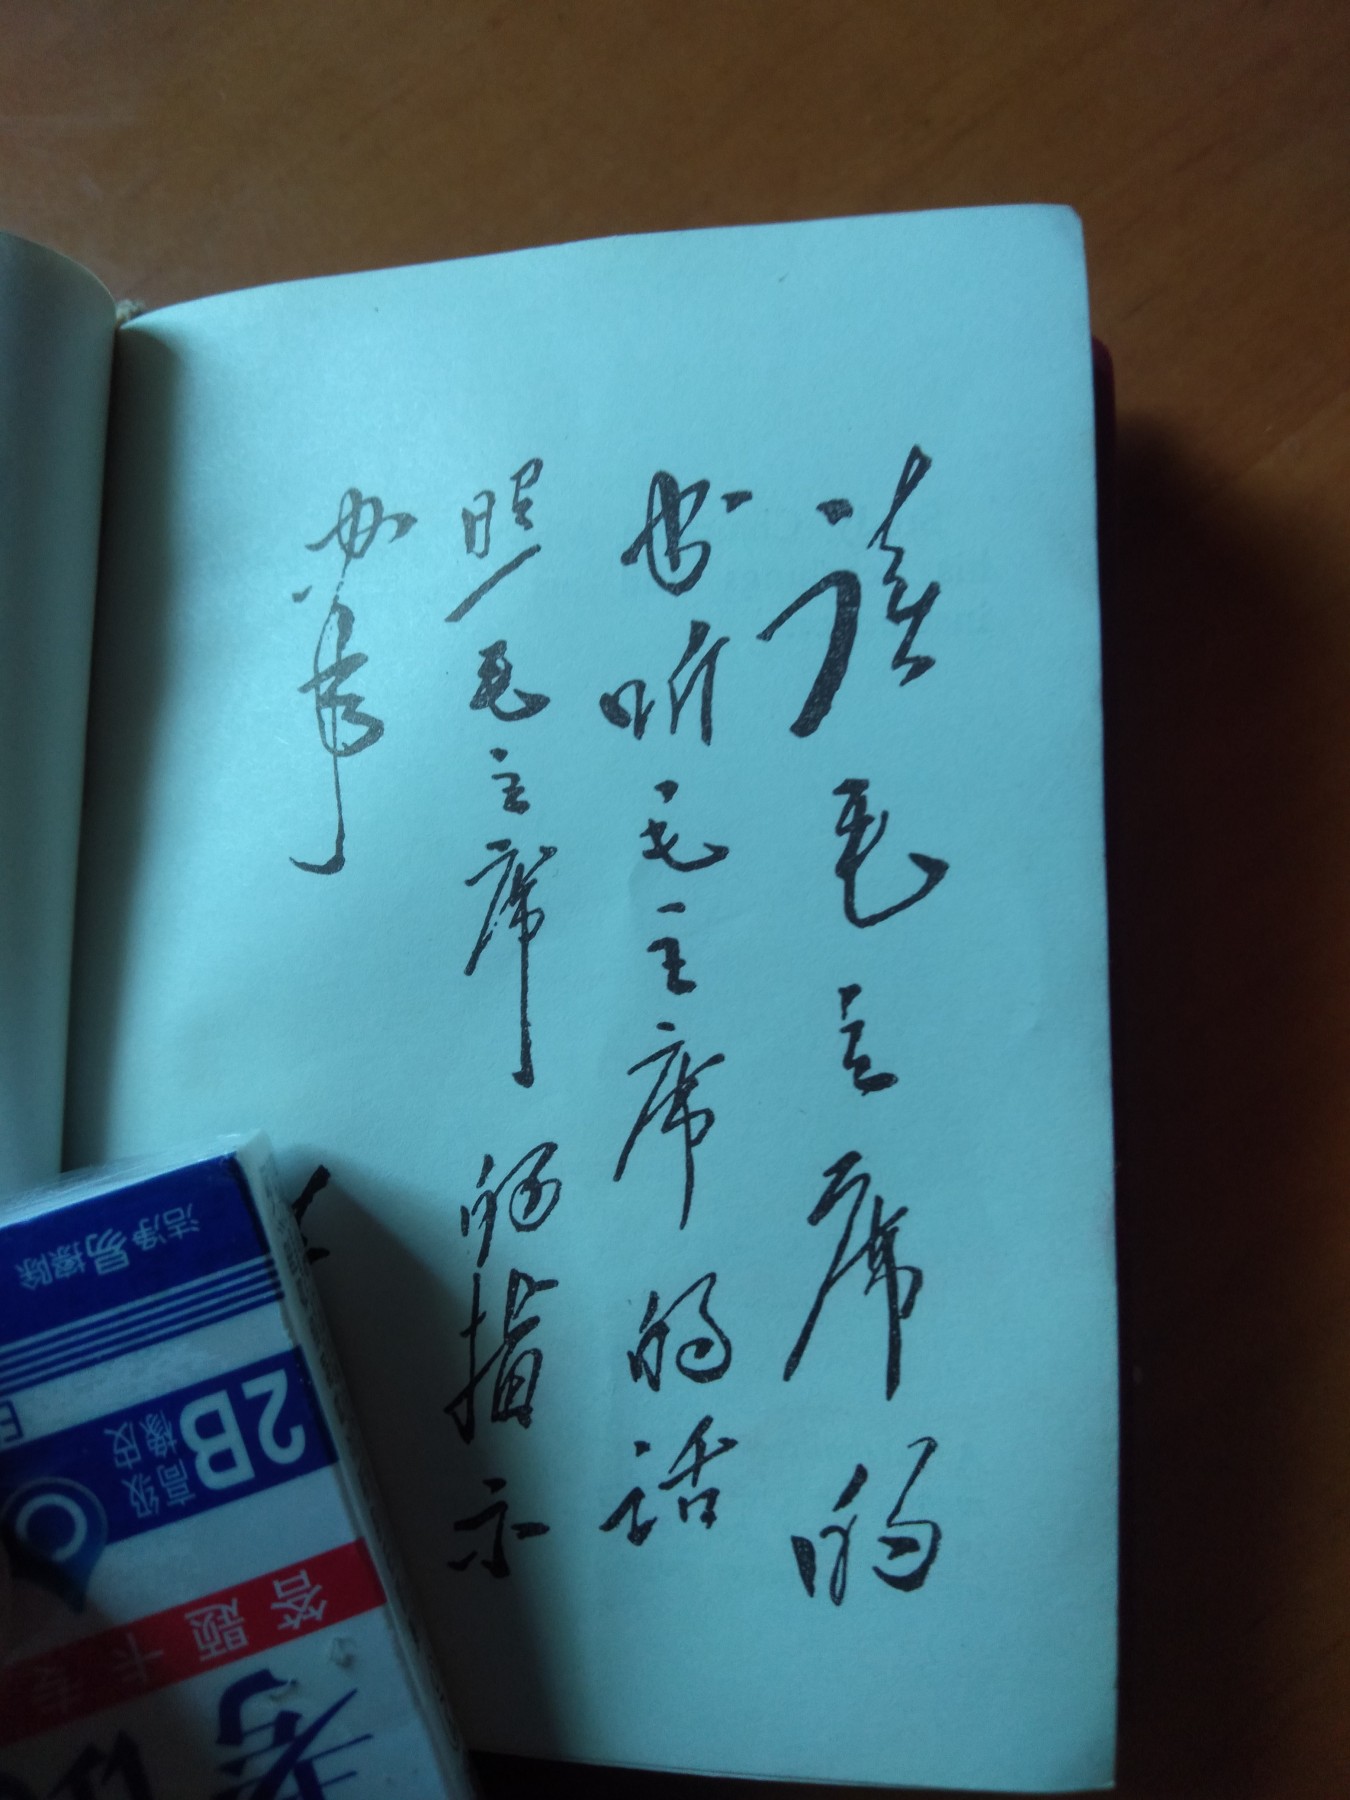 读毛主席的
书听毛主席的话
照毛主席的指示
办事
洁净易擦除
2B
高级
橡皮
答题卡
考